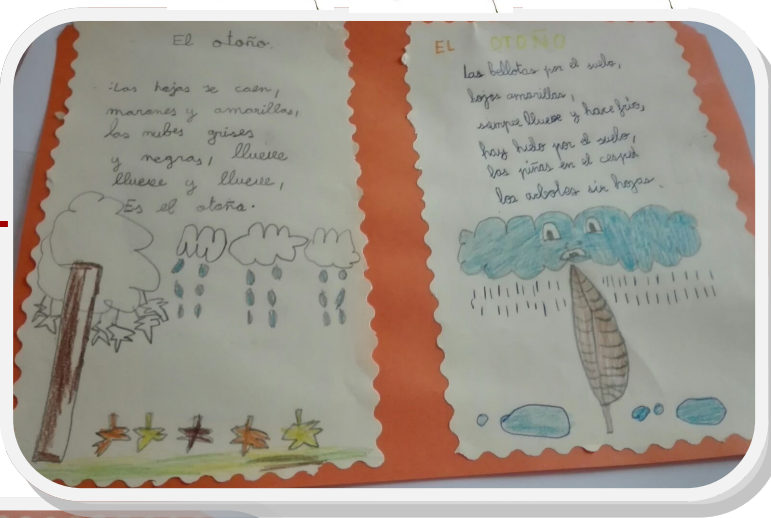 El otoño.
Las hojas se caen,
marones y amarillas,
las nubes grises
y negras, llueve
llueve y llueve,
Es el otoño.
EL OTOÑO
Las bellotas por el suelo,
hojas amarillas,
siempre llueve y hace frio,
hay hielo por el suelo,
las piñas en el cesped
los arboles sin hojas.